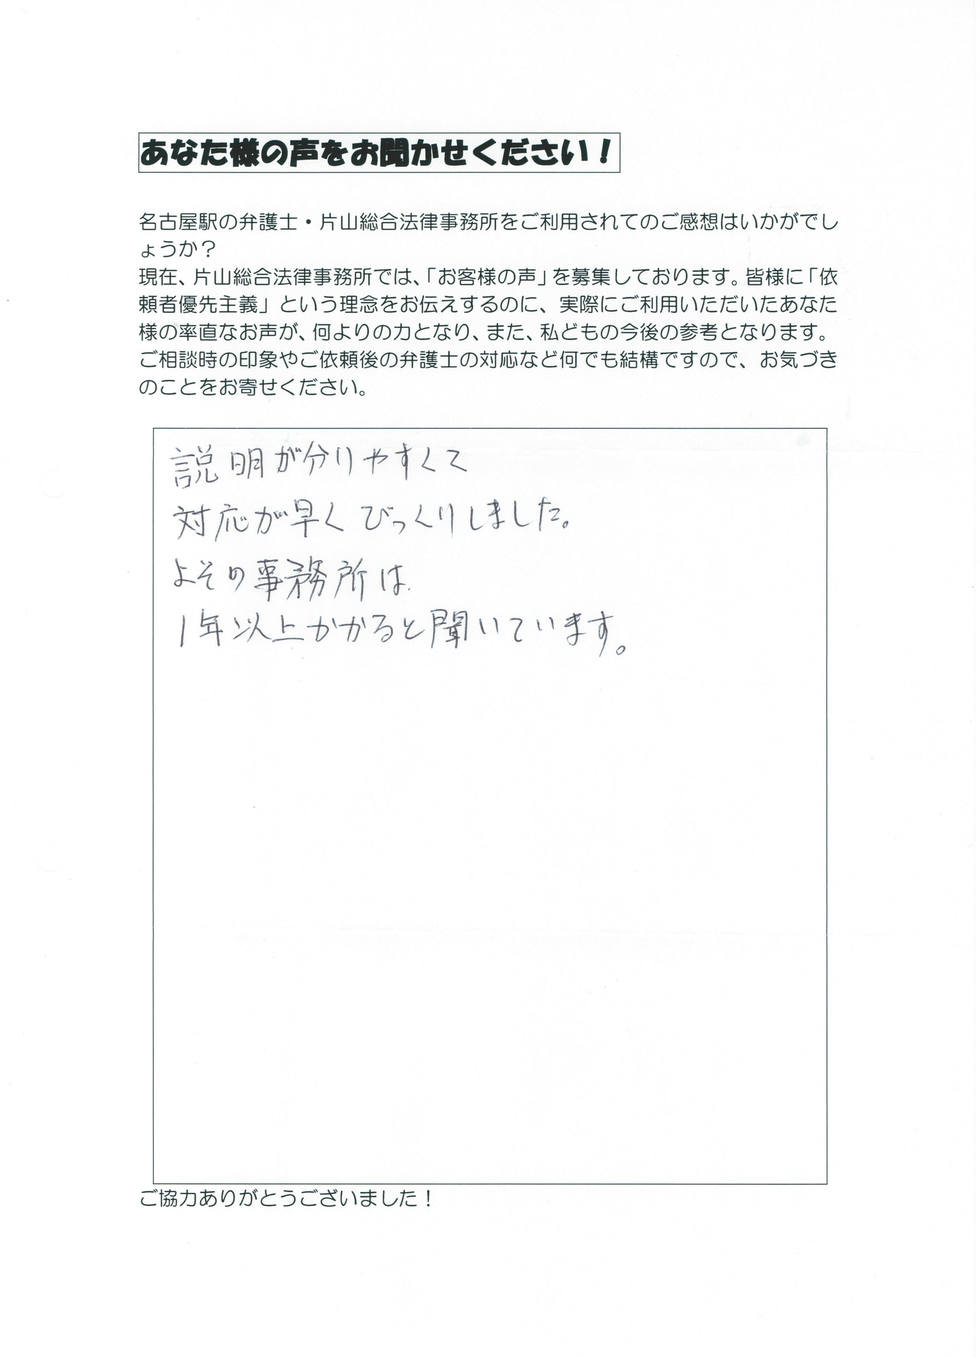 あなた様の声をお聞かせください！
名古屋駅の弁護士・片山総合法律事務所をご利用されてのご感想はいかがでし
ょうか？
現在、片山総合法律事務所では、「お客様の声」を募集しております。皆様に「依
頼者優先主義」という理念をお伝えするのに、実際にご利用いただいたあなた
様の率直なお声が、何よりの力となり、また、私どもの今後の参考となります。
ご相談時の印象やご依頼後の弁護士の対応など何でも結構ですので、お気づき
のことをお寄せください。
説明が分りやすくて
対応が早くびっくりしました。
よその事務所は
1年以上かかると聞いています。
ご協力ありがとうございました！